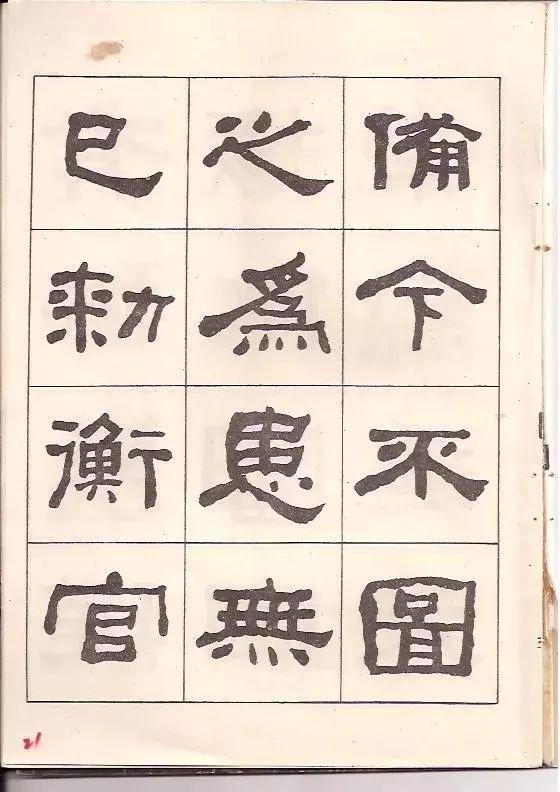 備今不圖
之爲患無
已勑衡官
21